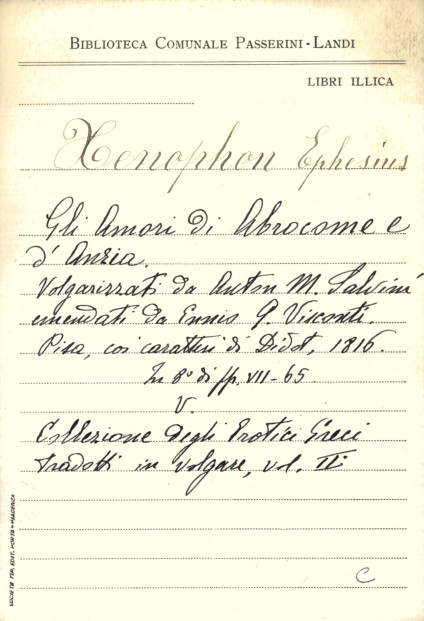 BIBLIOTECA COMUNALE PASSERINI-LANDI
LIBRI ILLICA
Xenophon Ephesius
Gli Amori di Abrocome e
d'Anzia.
Volgarizzati da Anton M. Salvini
emendati da Ennio Q. Visconti.
Pisa, coi caratteri di Didot, 1816.
In 8° di pp. VII-65.
V.
Collezione degli Erotici Greci
tradotti in volgare, vol. II
C
SOCIETÀ TIP. EDIT. PORTA - PIACENZA